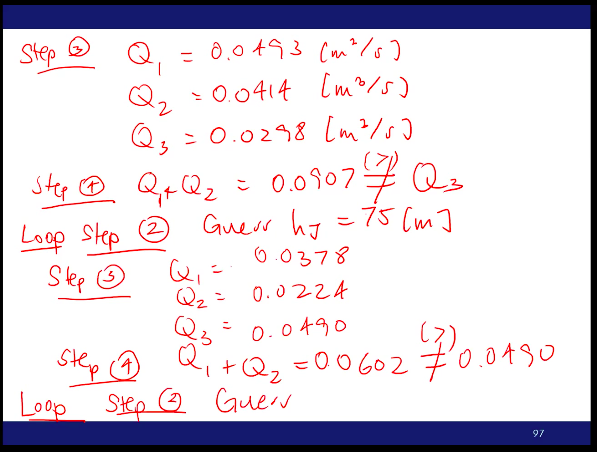 Step ③ Q₁ = 0.0493 [m³/s]
Q₂ = 0.0414 [m³/s]
Q₃ = 0.0298 [m³/s]
Step ④ Q₁+Q₂ = 0.0907 ≠ (>) Q₃
Loop Step ② Guess hJ = 75 [m]
Step ③ Q₁ = 0.0378
Q₂ = 0.0224
Q₃ = 0.0490
Step ④ Q₁+Q₂ = 0.0602 ≠ (>) 0.0490
Loop Step ② Guess
97